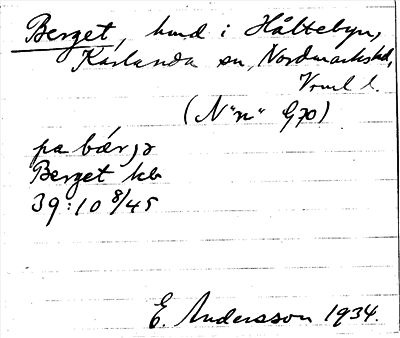 Berget, hmd i Håltebyn,
Karlanda sn, Nordmarks hd,
Vrml l.
(N"n" G70)
pa bær,ə
Berget kb
39:10 8/45
E. Andersson 1934.